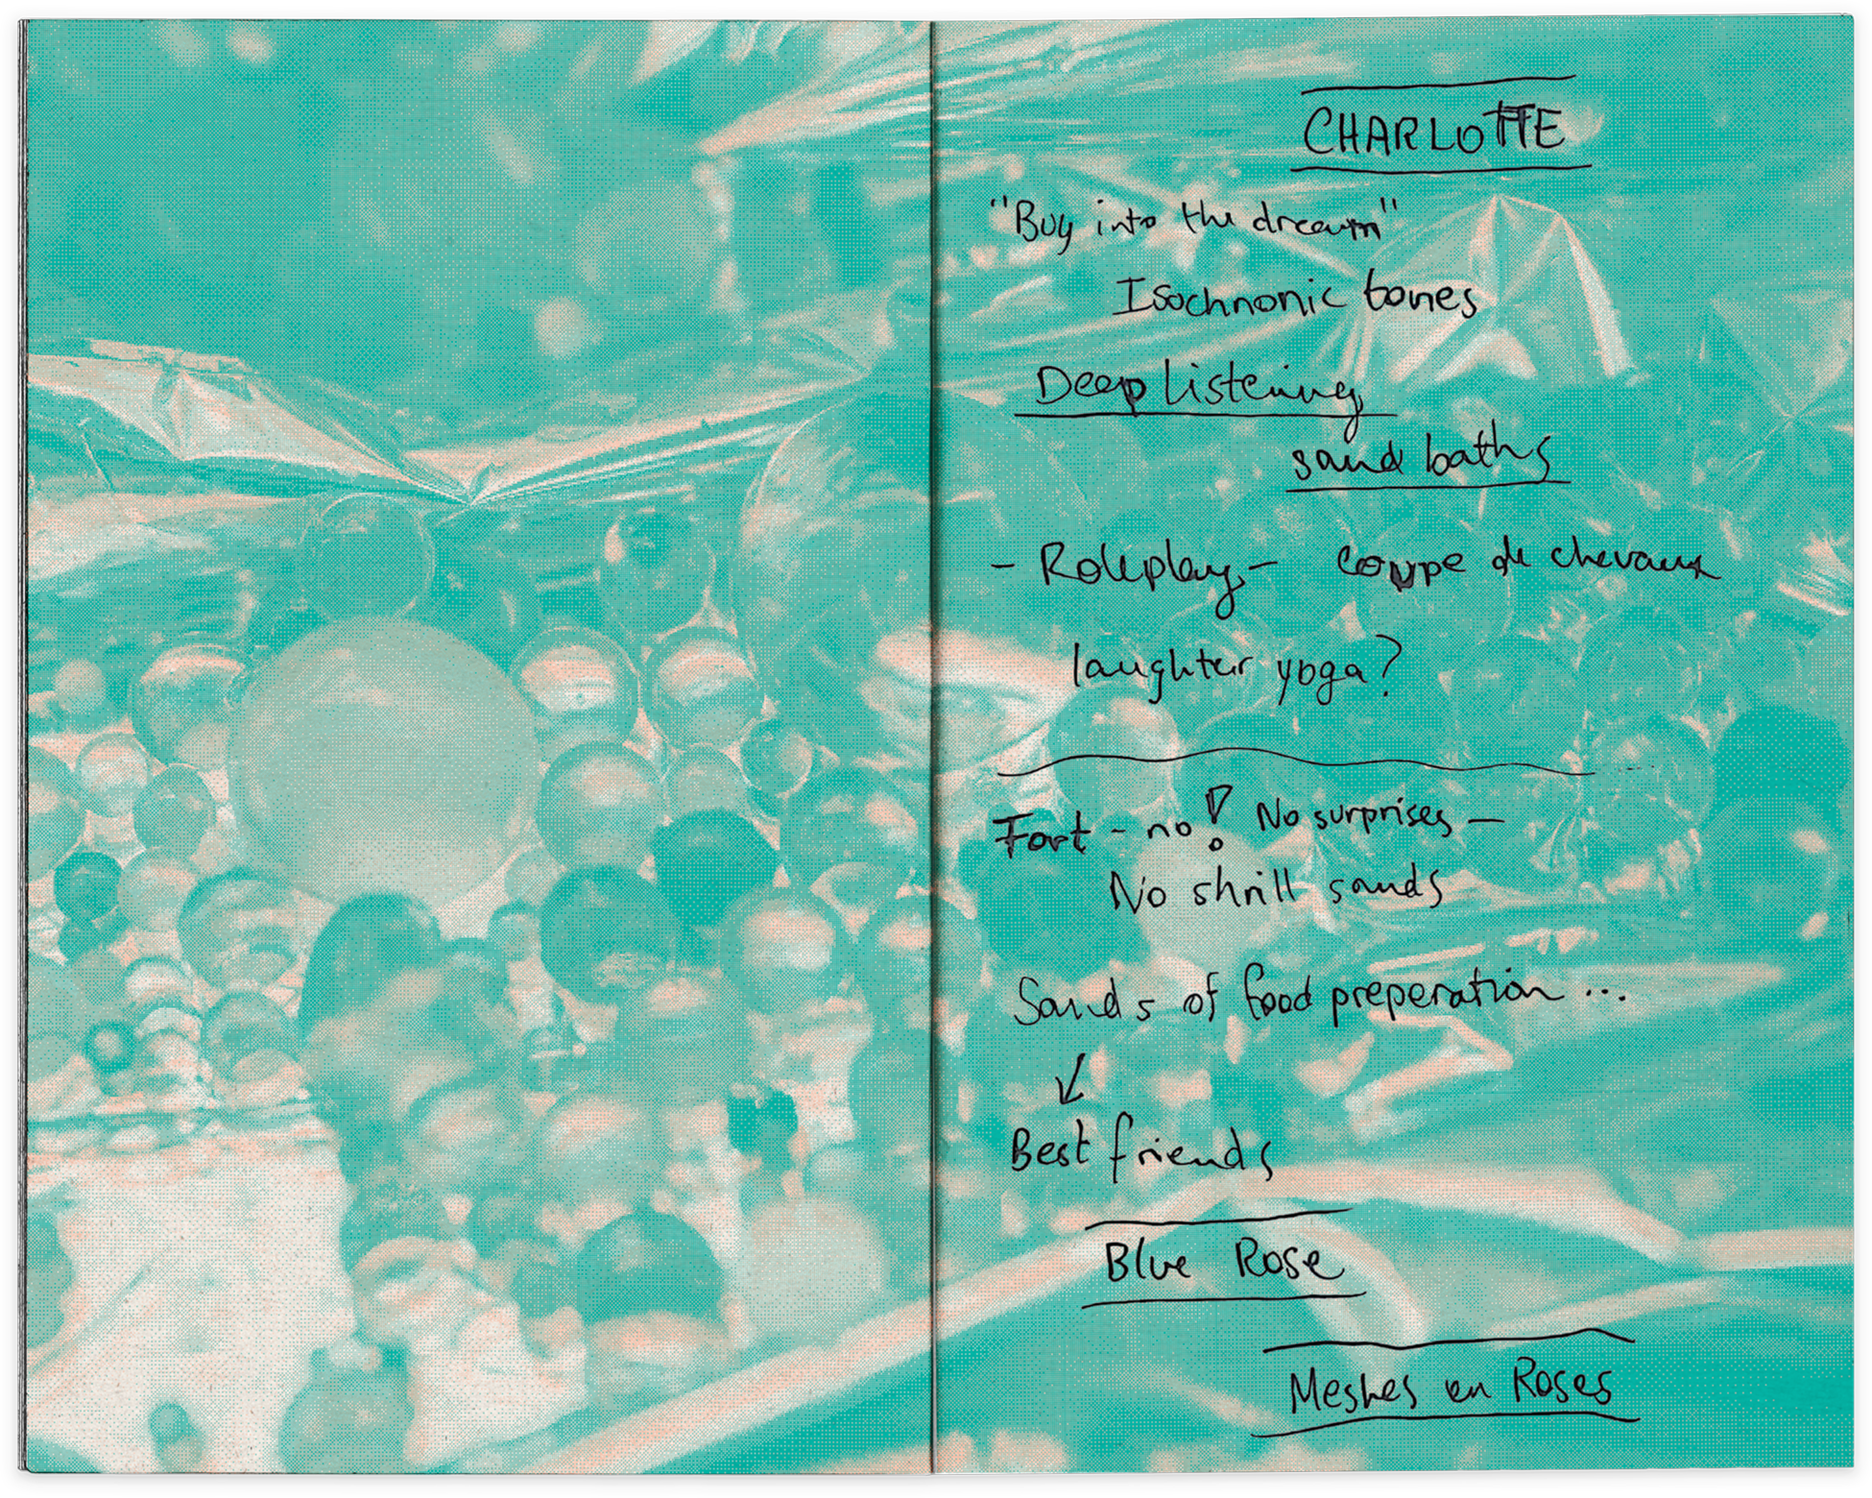 CHARLOTTE
"Buy into the dream"
Isochnonic tones
Deep listening
sand baths
- Roleplay - coupe de chevaux
laughter yoga?
Fart - no! No surprises -
No shrill sands
Sands of food preperation ...
↙
Best friends
Blue Rose
Meshes en Roses